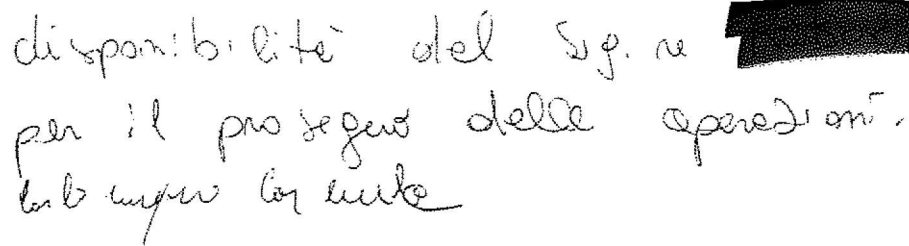 disponibilità del Sig.re
per il proseguo delle operazioni.